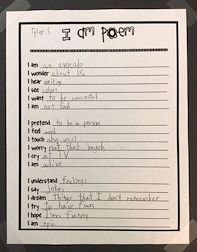 Tyler.S I am poem
I am an avocado
I wonder about life
I hear writing
I see colors
I want to be successful
I am not food
I pretend to be a person
I feel weird
I touch
I worry not that much
I cry at TV
I am alive
I understand feelings
I say jokes
I dream things that I don't remember
I try to have fun
I hope I'm funny
I am epic